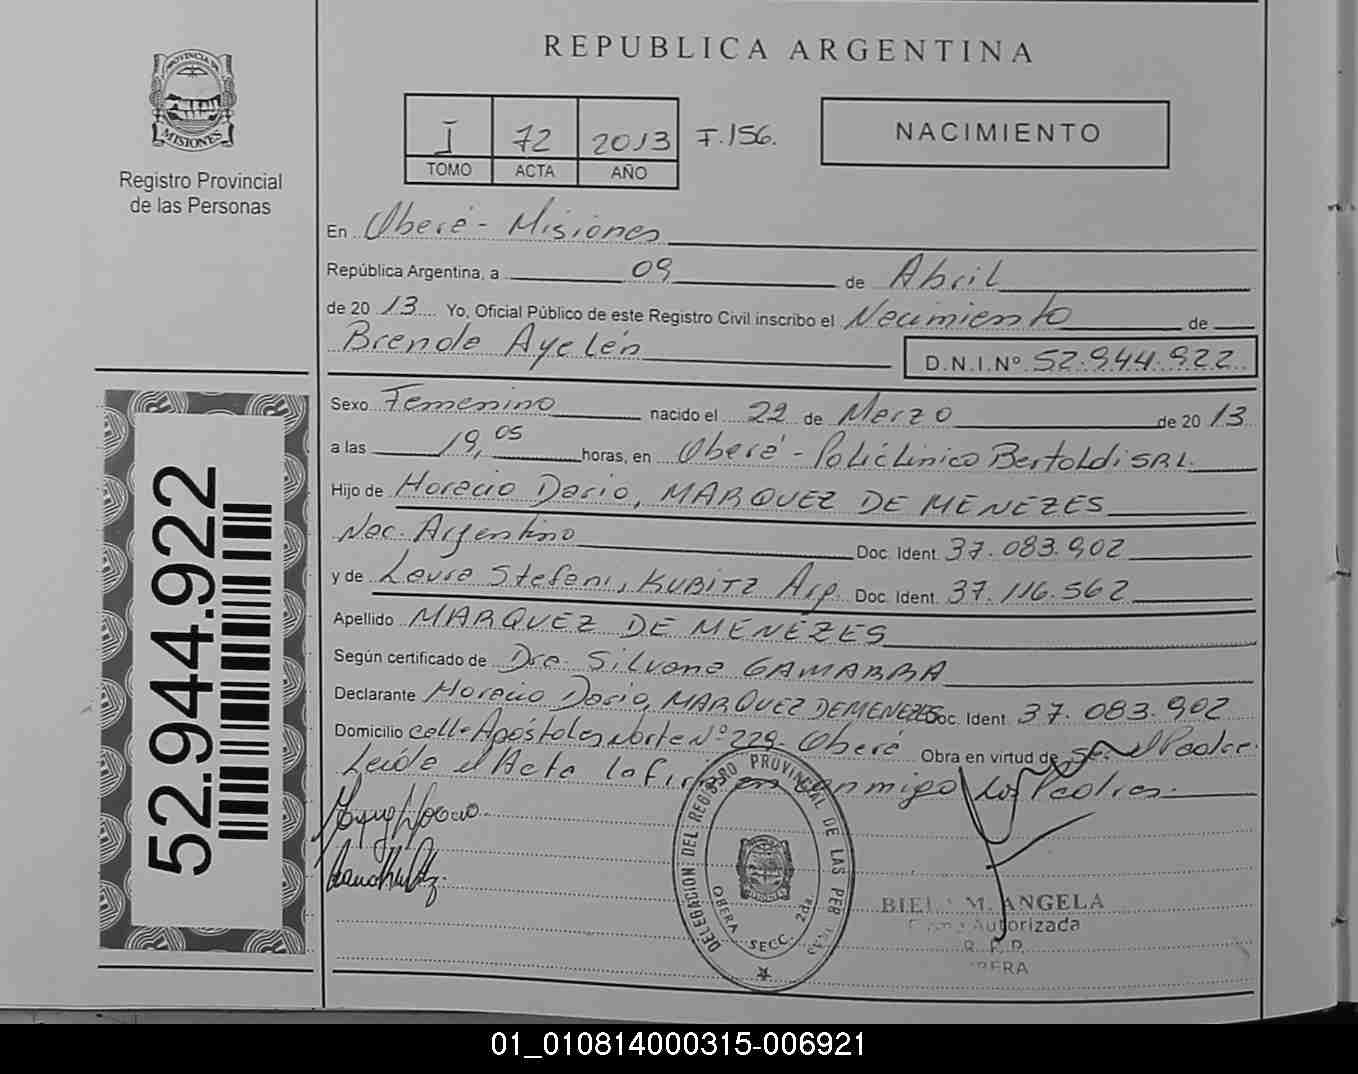 REPUBLICA ARGENTINA
PROVINCIA DE MISIONES
Registro Provincial
de las Personas
I 72 2013 F.156.
TOMO ACTA AÑO
NACIMIENTO
En Oberá - Misiones
República Argentina, a 09 de Abril
de 2013 Yo, Oficial Público de este Registro Civil inscribo el Nacimiento de
Brenda Ayelén D.N.I.Nº 52.944.922
Sexo Femenino nacido el 22 de Marzo de 2013
a las 19,05 horas, en Oberá - Policlinico Bertoldi SRL.
Hijo de Horacio Dario, MARQUEZ DE MENEZES
Nac. Argentino Doc. Ident. 37.083.902
y de Laura Stefani, KUBITZ Arg. Doc. Ident. 37.116.562
Apellido MARQUEZ DE MENEZES
Según certificado de Dra. Silvana GAMARRA
Declarante Horacio Dario, MARQUEZ DE MENEZES Doc. Ident. 37.083.902
Domicilio calle Apóstoles Norte Nº 229 - Oberá Obra en virtud de ser el Padre.
Leída el Acta la firman conmigo los Padres.
52.944.922
DELEGACION DEL REGISTRO PROVINCIAL DE LAS PERSONAS
OBERA SECC. 2da.
M. ANGELA
Firma Autorizada
R. P. P.
OBERA
01_010814000315-006921